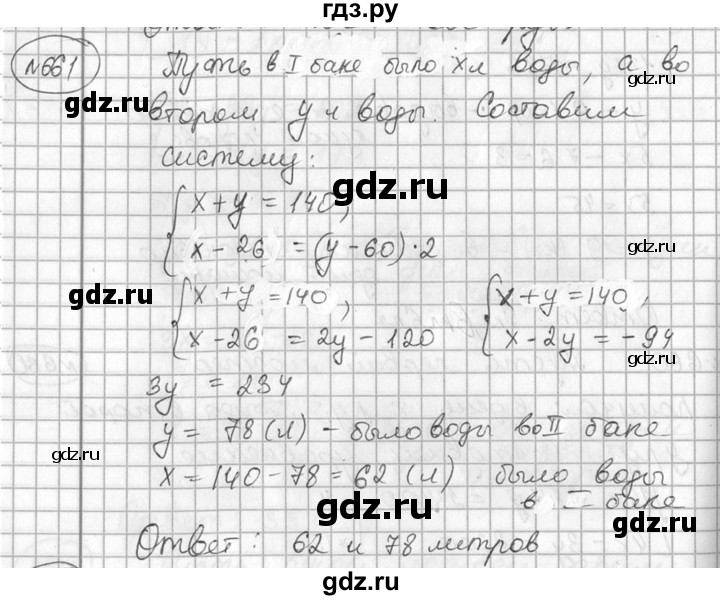 гдз.ру
№661
Пусть в I баке было x л воды, а во
gdz.ru
втором y л воды. Составим
gdz.ru
систему:
gdz.ru
x + y = 140,
x - 26 = (y - 60) · 2
gdz.ru
gdz.ru
x + y = 140,
x - 26 = 2y - 120
x + y = 140,
x - 2y = - 94
gdz.ru
3y = 234
y = 78 (л) - было воды во II баке
gdz.ru
x = 140 - 78 = 62 (л) было воды
в I баке
gdz.ru
gdz.ru
Ответ: 62 и 78 метров
gdz.ru